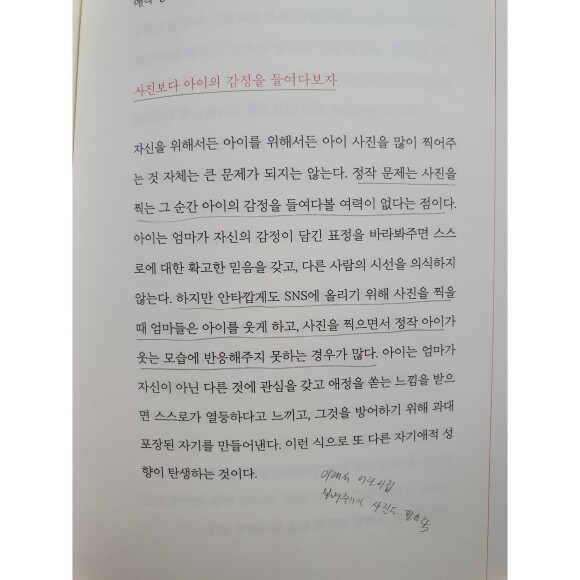 사진보다 아이의 감정을 들여다보자
자신을 위해서든 아이를 위해서든 아이 사진을 많이 찍어주
는 것 자체는 큰 문제가 되지는 않는다. 정작 문제는 사진을
찍는 그 순간 아이의 감정을 들여다볼 여력이 없다는 점이다.
아이는 엄마가 자신의 감정이 담긴 표정을 바라봐주면 스스
로에 대한 확고한 믿음을 갖고, 다른 사람의 시선을 의식하지
않는다. 하지만 안타깝게도 SNS에 올리기 위해 사진을 찍을
때 엄마들은 아이를 웃게 하고, 사진을 찍으면서 정작 아이가
웃는 모습에 반응해주지 못하는 경우가 많다. 아이는 엄마가
자신이 아닌 다른 것에 관심을 갖고 애정을 쏟는 느낌을 받으
면 스스로가 열등하다고 느끼고, 그것을 방어하기 위해 과대
포장된 자기를 만들어낸다. 이런 식으로 또 다른 자기애적 성
향이 탄생하는 것이다.
사진도